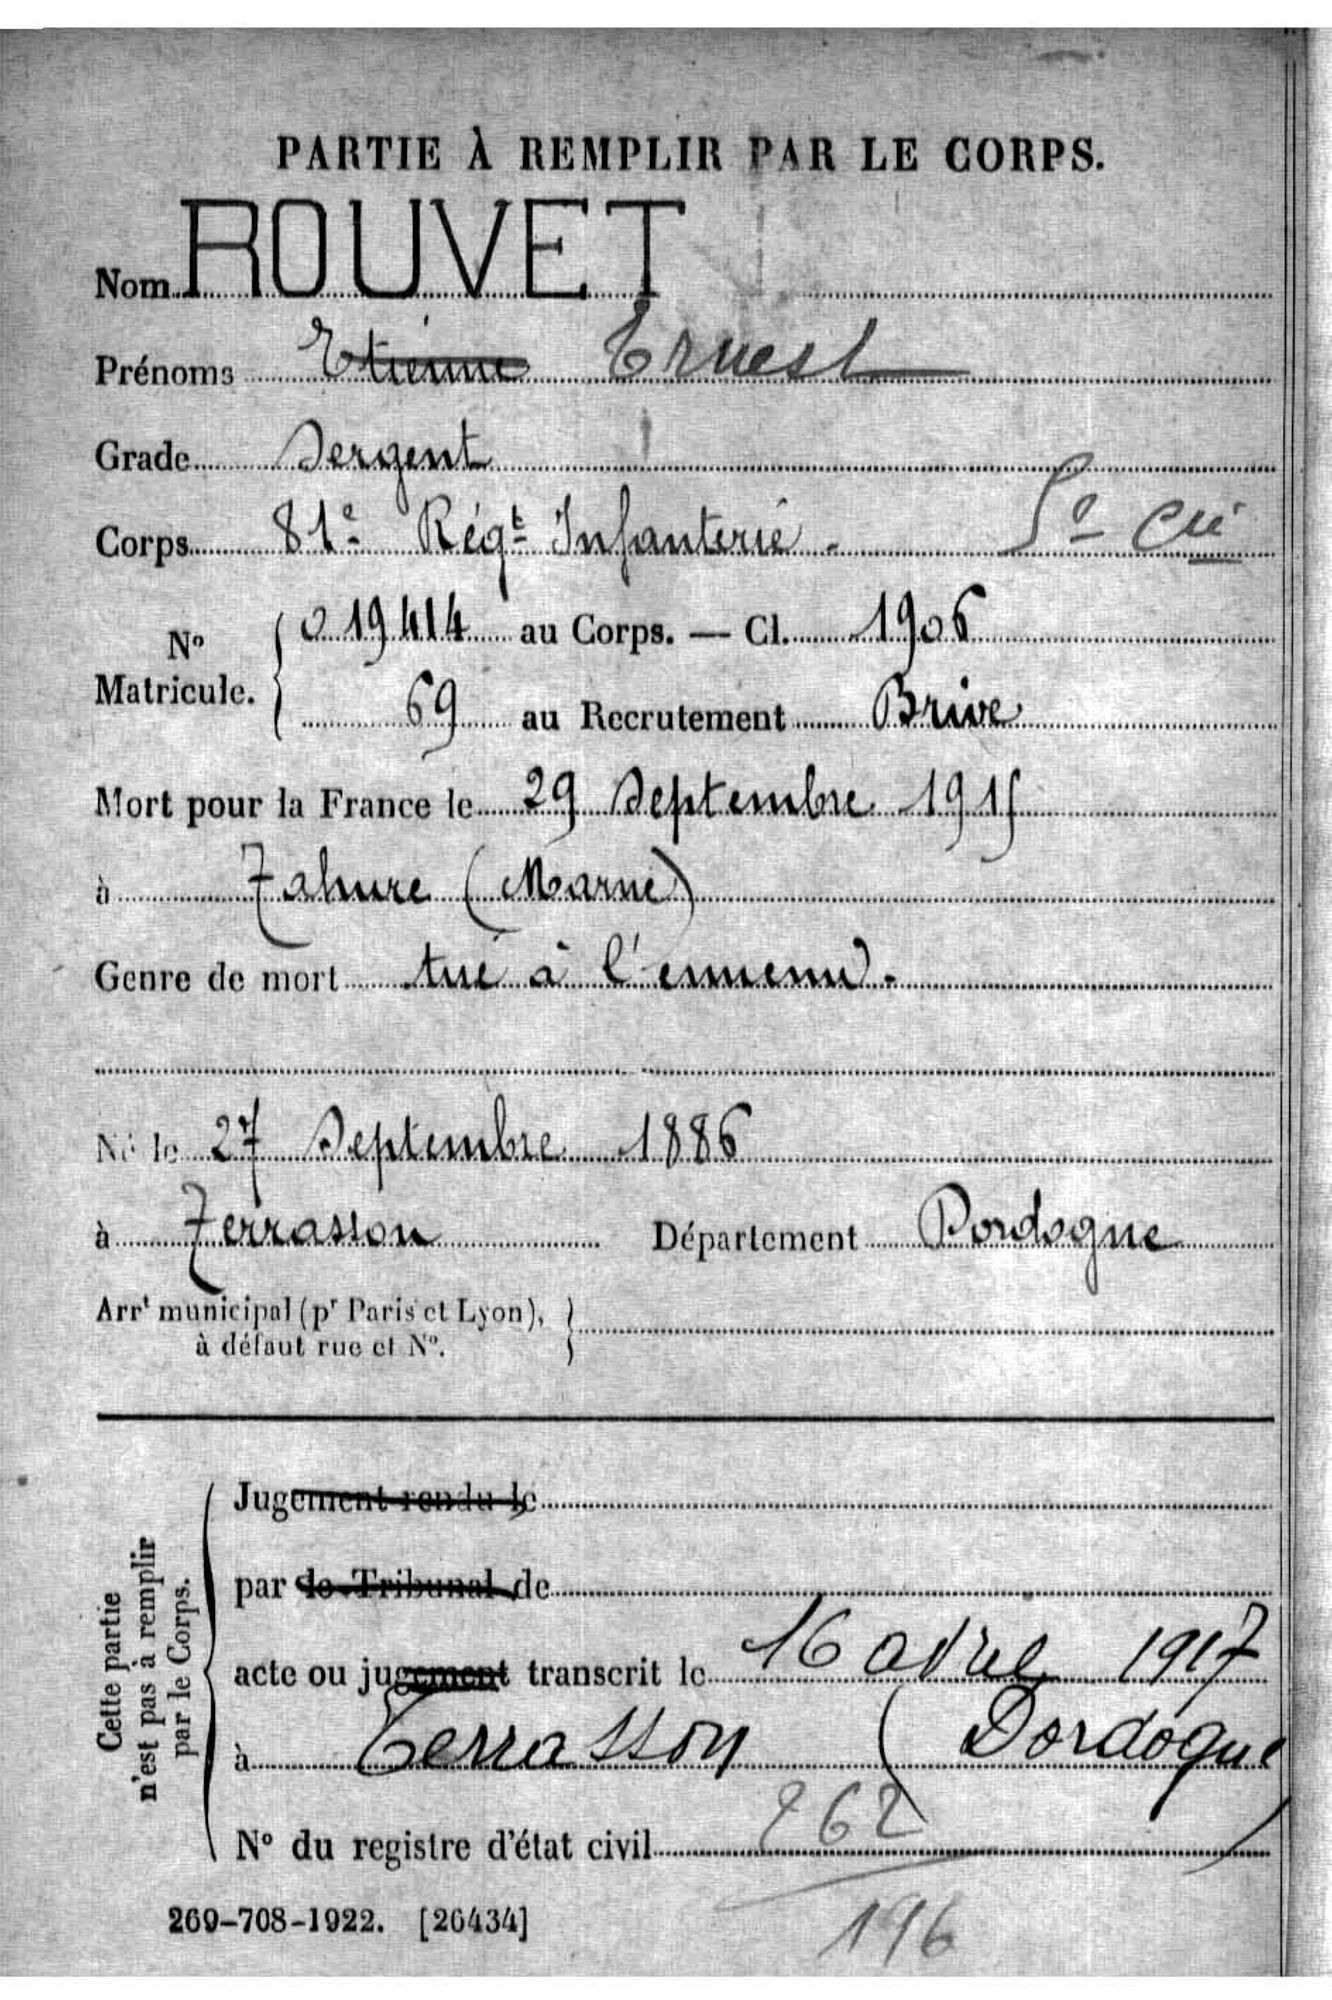 PARTIE À REMPLIR PAR LE CORPS.
Nom ROUVET
Prénoms Etienne Ernest
Grade Sergent
Corps 81e Régt Infanterie - 5e Cie
No Matricule. { 019414 au Corps. — Cl. 1906
69 au Recrutement Brive
Mort pour la France le 29 Septembre 1915
à Tahure (Marne)
Genre de mort tué à l'ennemi.
Né le 27 Septembre 1886
à Terrasson Département Dordogne
Arrt municipal (pr Paris et Lyon), }
à défaut rue et No.
Cette partie
n'est pas à remplir
par le Corps.
Jugement rendu le
par le Tribunal de
acte ou jugement transcrit le 16 avril 1917
à Terrasson (Dordogne)
No du registre d'état civil 262
196
269-708-1922. [26434]